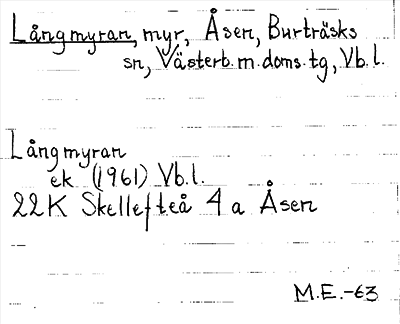 Långmyran, myr, Åsen, Burträsks
sn, Västerb. m. doms. tg, Vb. l.
Långmyran
ek (1961) Vb. l.
22K Skellefteå 4a Åsen
M.E.-63